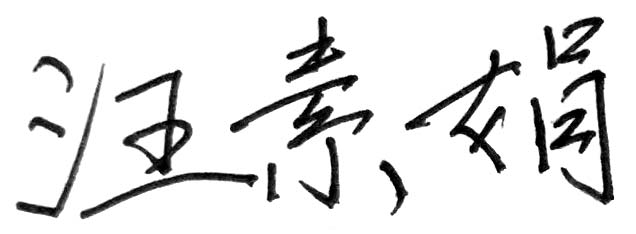 汪素娟